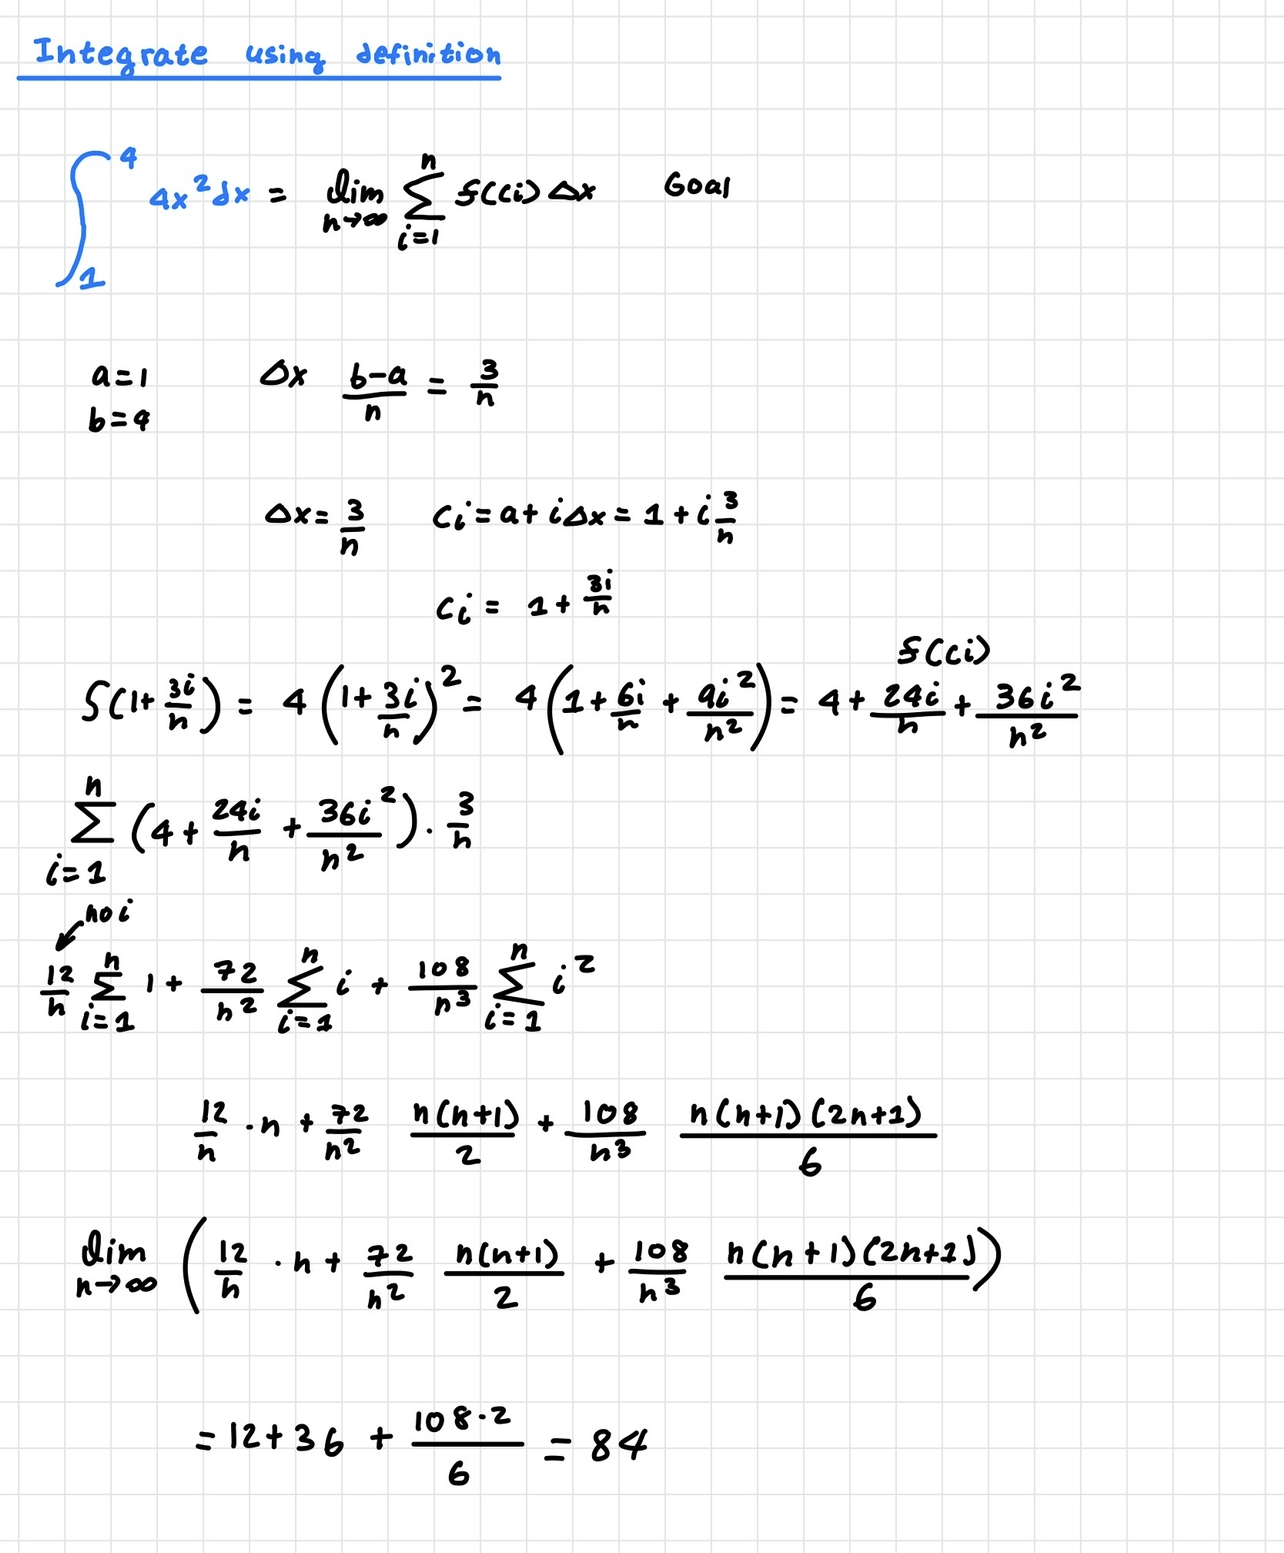 Integrate using definition
∫₁⁴ 4x² dx = lim n→∞ ∑ i=1 n f(ci) Δx Goal
a=1 Δx (b-a)/n = 3/n
b=4
Δx = 3/n ci = a + iΔx = 1 + i 3/n
ci = 1 + 3i/n
f(ci)
f(1 + 3i/n) = 4(1 + 3i/n)² = 4(1 + 6i/n + 9i²/n²) = 4 + 24i/n + 36i²/n²
∑ i=1 n (4 + 24i/n + 36i²/n²) · 3/n
no i
12/n ∑ i=1 n 1 + 72/n² ∑ i=1 n i + 108/n³ ∑ i=1 n i²
12/n · n + 72/n² n(n+1)/2 + 108/n³ n(n+1)(2n+1)/6
lim n→∞ (12/n · n + 72/n² n(n+1)/2 + 108/n³ n(n+1)(2n+1)/6)
= 12 + 36 + 108·2/6 = 84